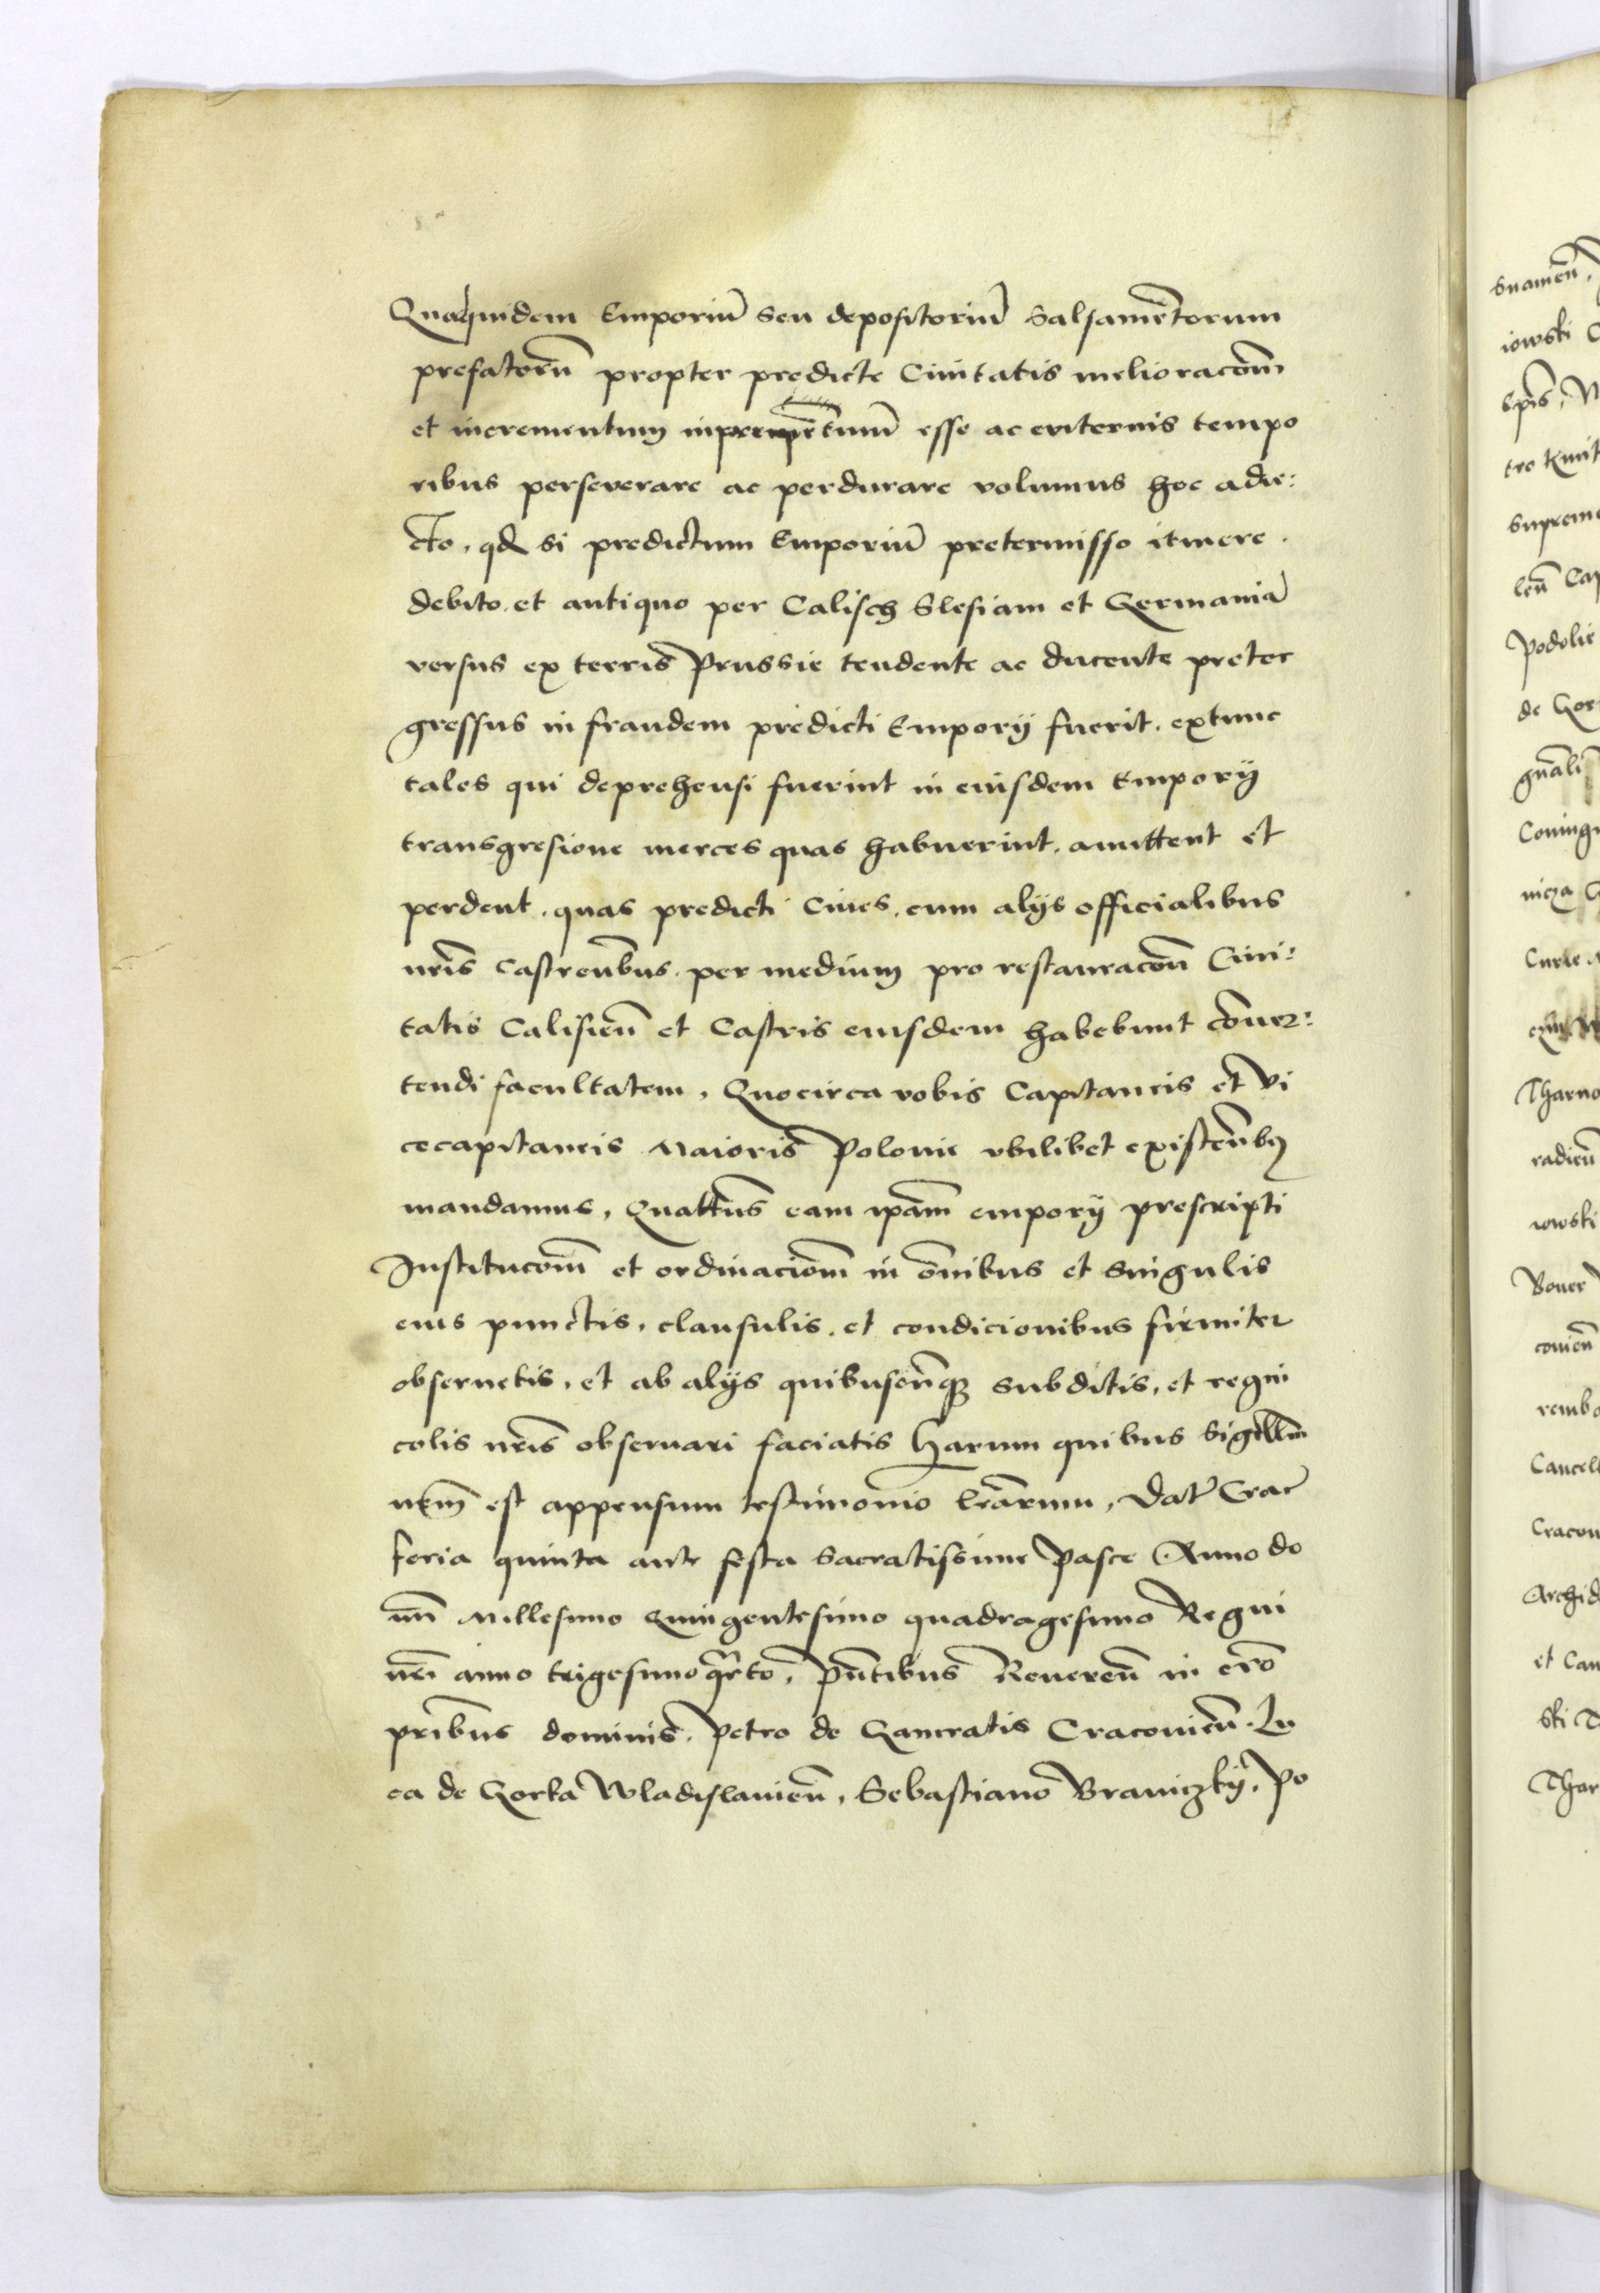 Quaquidem Emporiũ seu depositoriũ Salsamẽtorum
prefatorũ propter predicte Ciuitatis melioracõm
et incrementum esse ac eviternis tempo
ribus perseverare ac perdurare volumus hoc adie:
cto, qd si predictum Emporiũ pretermisso itinere.
debito. et antiquo per Calisch Slesiam et Germaniã
versus ex terris Prussie tendente ac ducente preter
gressus in fraudem predicti Emporij fuerit. extunc
tales qui deprehensi fuerint in eiusdem Emporij
transgresione merces quas habuerint. amittent et
perdent. quas predicti Ciues. cum alijs officialibus
nris Castrenbus. per medium pro restauracõn Ciui:
tatis Calisieñ et Castris eiusdem habebunt cõuer:
tendi facultatem, Quocirca vobis Capitaneis et vi
cecapitaneis Maioris Polonie vbilibet existeñbus
mandamus, Quatt̃us eam ip̃am emporij prescripti
Institucõm et ordinaciõm in õnibus et singulis
eius punctis, clausulis. et condicionibus firmiter
obseruetis, et ab alijs quibuscũq subditis, et regni
colis nris obseruari faciatis Harum quibus Sigillũ
nrm̃ est appensum testimonio lrãrum, Dat̃ Crac̃
feria quinta ante festa Sacratissime Pasce Anno do
mñ Millesimo Quingentesimo quadragesimo Regni
nri anno trigesimo qrto, p̃ntibus Revereñ in cr̃o
prĩbus dominis, Petro de Gamratis Cracovieñ. Lu
ca de Gorka Wladislavieñ, Sebastiano Braniczky, Po
snameñ,
iowski C
Ep̃is, N
tro Kmit
supreme
leñ Cap
Podolie
de Gor
gñali
Coning
nicza C
Curie
Tharno
radieñ
iowski
Boner
covieñ
remb
Cancell
Cracou
Archid
et Can
ski
Thar